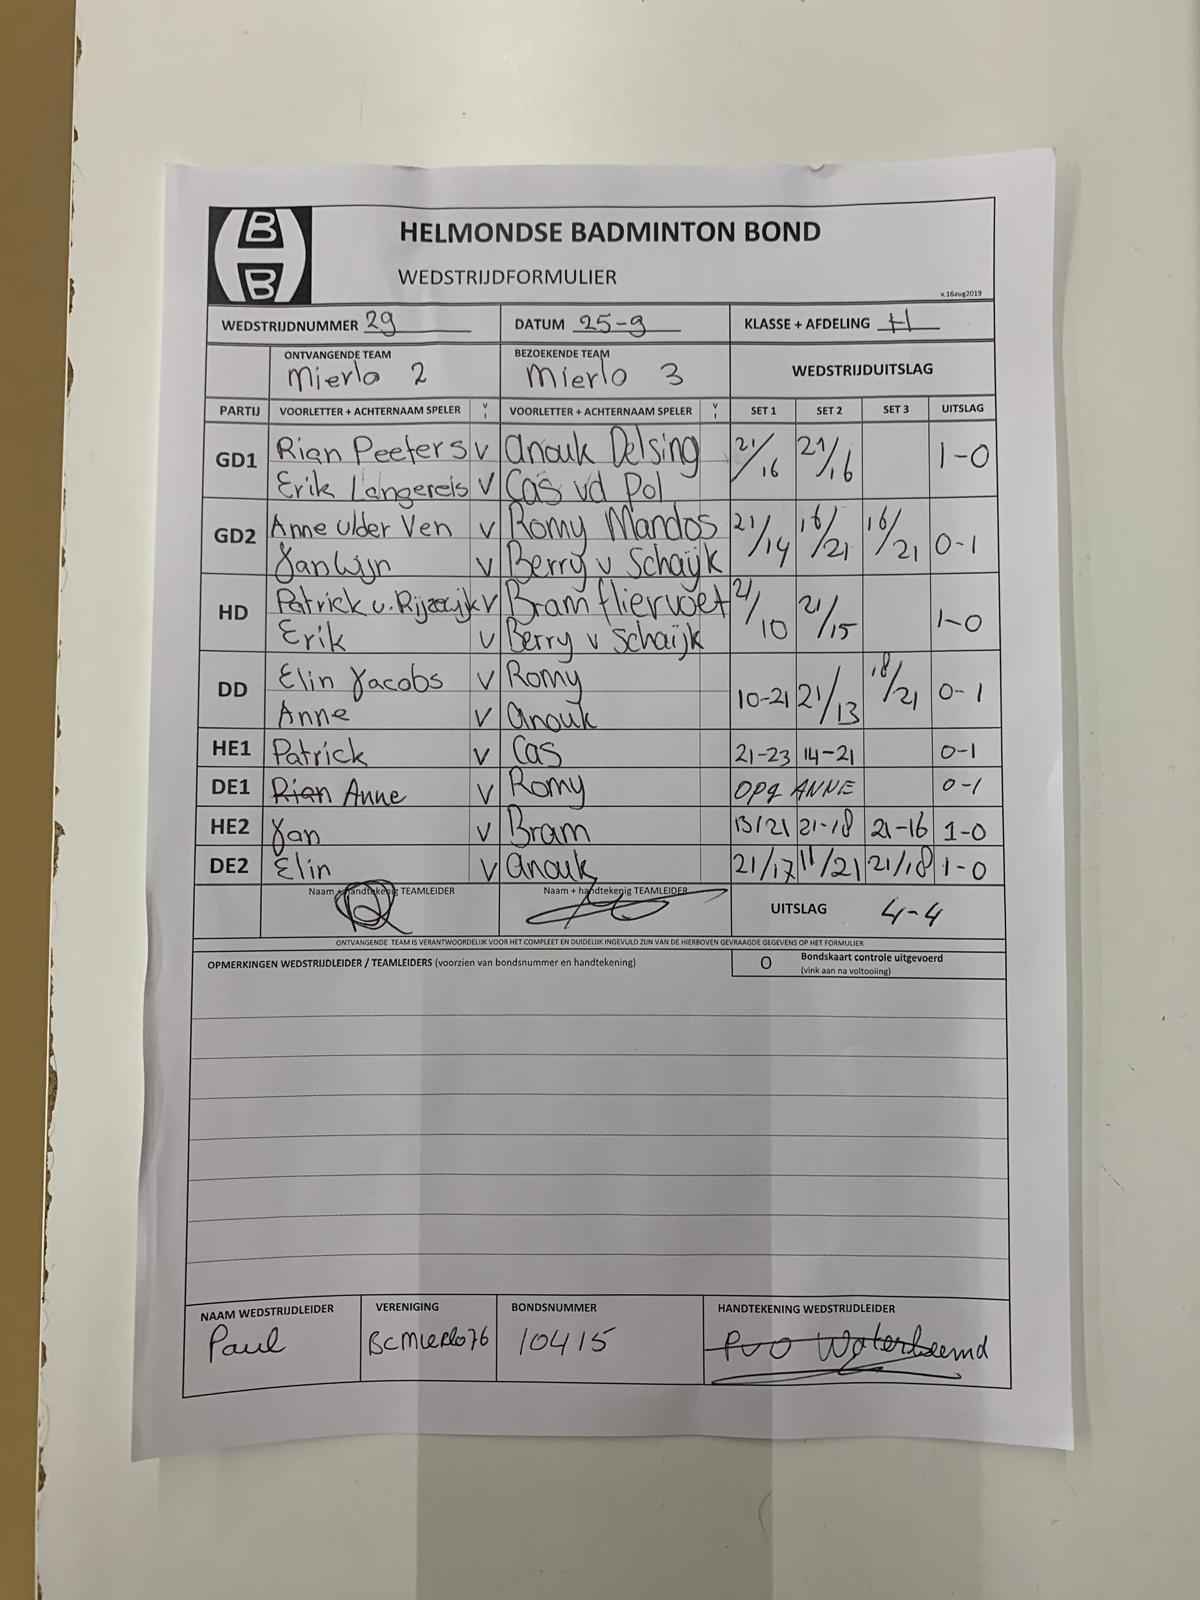 B
B
HELMONDSE BADMINTON BOND
WEDSTRIJDFORMULIER
v.16aug2019
WEDSTRIJDNUMMER 29 DATUM 25-9 KLASSE + AFDELING H
ONTVANGENDE TEAM BEZOEKENDE TEAM WEDSTRIJDUITSLAG
Mierlo 2 Mierlo 3
PARTIJ VOORLETTER + ACHTERNAAM SPELER V I VOORLETTER + ACHTERNAAM SPELER V I SET 1 SET 2 SET 3 UITSLAG
GD1 Rian Peeters V Anouk Delsing 21/16 21/16 1-0
Erik Langereis V Cas vd Pol
GD2 Anne v/der Ven V Romy Mandos 21/14 16/21 16/21 0-1
Jan Wijn V Berry v Schaijk
HD Patrick v. V Bram fliervoet 21/10 21/15 1-0
Erik V Berry v Schaijk
DD Elin Jacobs V Romy 10-21 21/13 18/21 0-1
Anne V Anouk
HE1 Patrick V Cas 21-23 14-21 0-1
DE1 Rian Anne V Romy OPG ANNE 0-1
HE2 Jan V Bram 13/21 21-18 21-16 1-0
DE2 Elin V Anouk 21/17 11/21 21/18 1-0
Naam + handtekenig TEAMLEIDER Naam + handtekenig TEAMLEIDER UITSLAG 4-4
ONTVANGENDE TEAM IS VERANTWOORDELIJK VOOR HET COMPLEET EN DUIDELIJK INGEVULD ZIJN VAN DE HIERBOVEN GEVRAAGDE GEGEVENS OP HET FORMULIER
OPMERKINGEN WEDSTRIJDLEIDER / TEAMLEIDERS (voorzien van bondsnummer en handtekening) O Bondskaart controle uitgevoerd
(vink aan na voltooiing)
NAAM WEDSTRIJDLEIDER VERENIGING BONDSNUMMER HANDTEKENING WEDSTRIJDLEIDER
Paul BCMierlo76 10415 PvO Waterbeemd